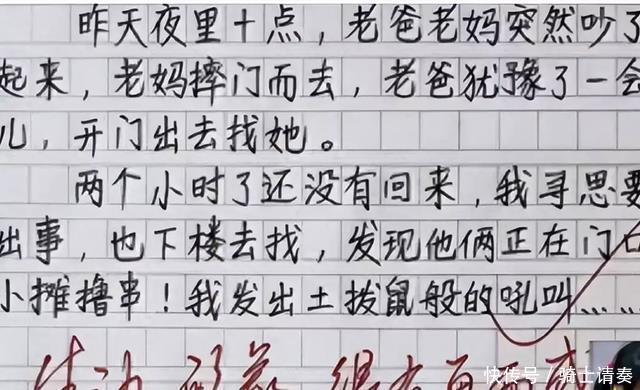 昨天夜里十点，老爸老妈突然吵了
起来，老妈摔门而去，老爸犹豫了一会
儿，开门出去找她。
两个小时了还没有回来，我寻思要
出事，也下楼去找，发现他俩正在门口
小摊撸串！我发出土拨鼠般的吼叫……
快传号／骑士请奏